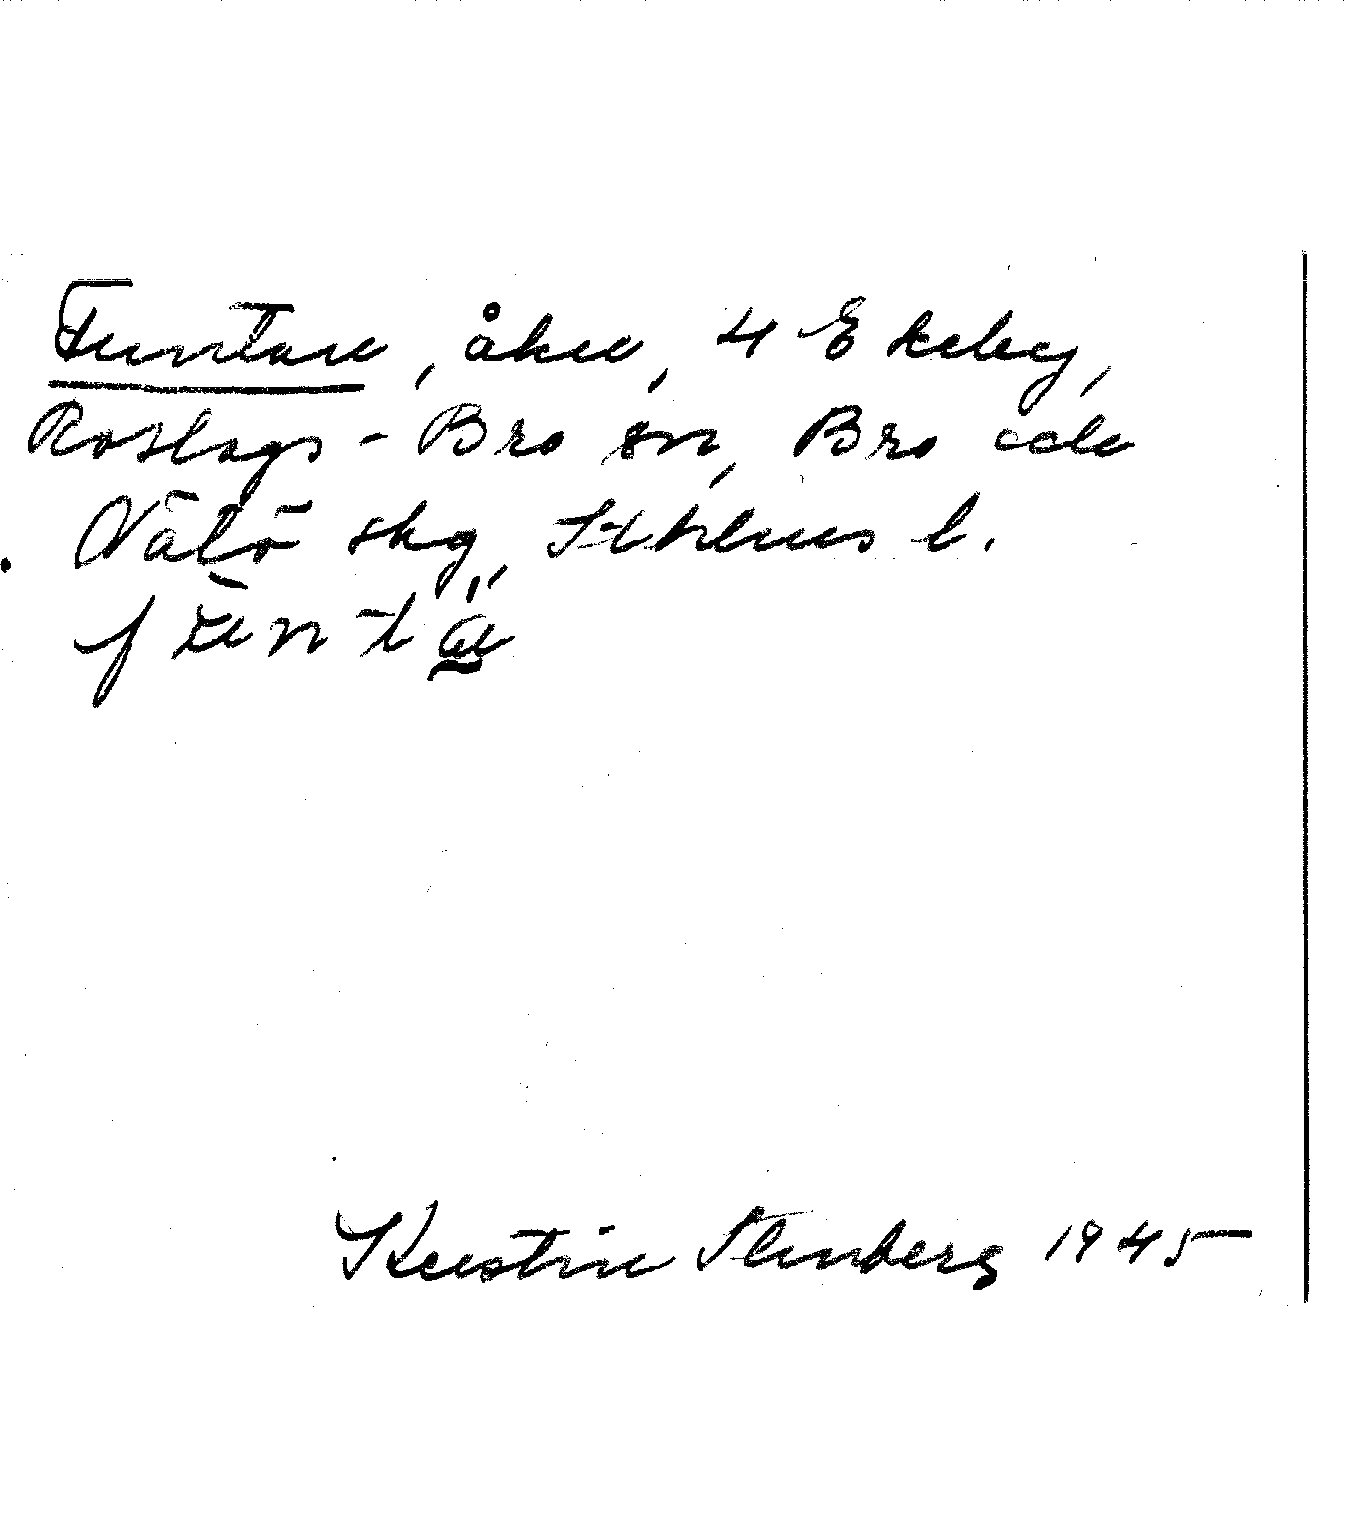 Funtan, åker, 4 Ekeby,
Roslags-Bro sn, Bro och
Vätö skg, Sthlms l.
Kerstin Stenberg 1945